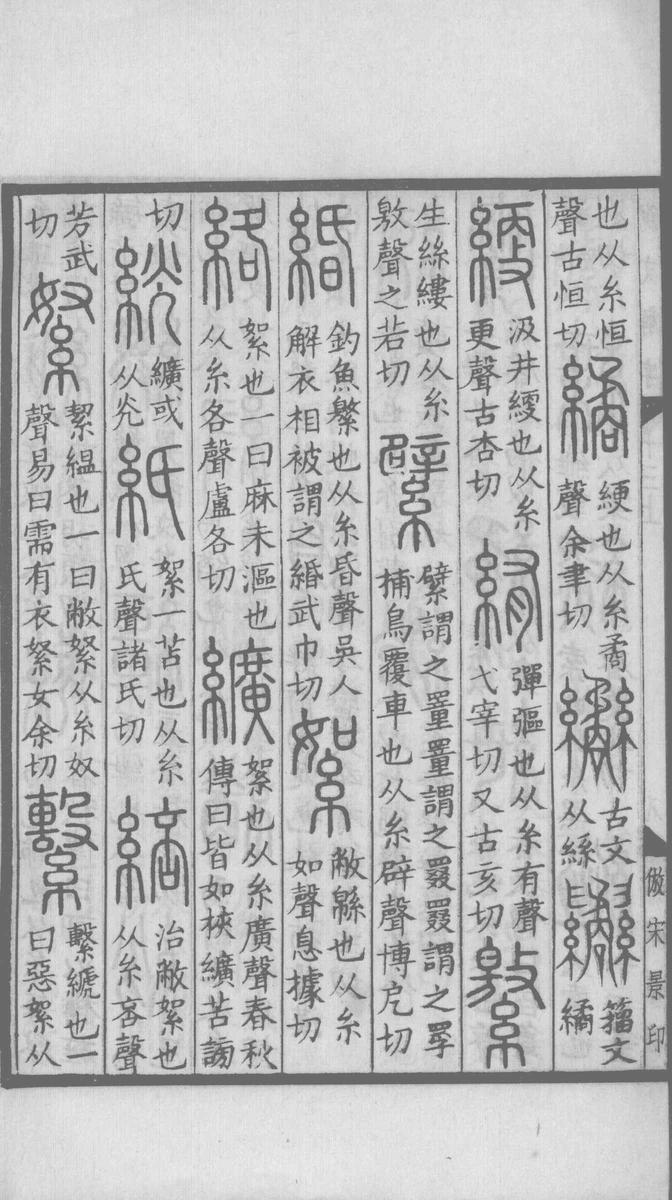 也从糸恒聲古恒切繘綆也从糸矞聲余聿切古文从絲籀文繘
綆汲井綆也从糸更聲古杏切絠彈彄也从糸有聲弋宰切又古亥切繳
生絲縷也从糸敫聲之若切繴繴謂之罿罿謂之罬罬謂之罦捕鳥覆車也从糸辟聲博戹切
緍釣魚繁也从糸昏聲吳人解衣相被謂之緍武巾切絮敝緜也从糸如聲息據切
絡絮也一曰麻未漚也从糸各聲盧各切纊絮也从糸廣聲春秋傳曰皆如挾纊苦謗
切絖纊或从光紙絮一苫也从糸氏聲諸氏切䋨治敝絮也从糸咅聲
芳武切䋈絜緼也一曰敝䋈从糸奴聲易曰需有衣䋈女余切繫繫褫也一曰惡絮从
倣宋景印